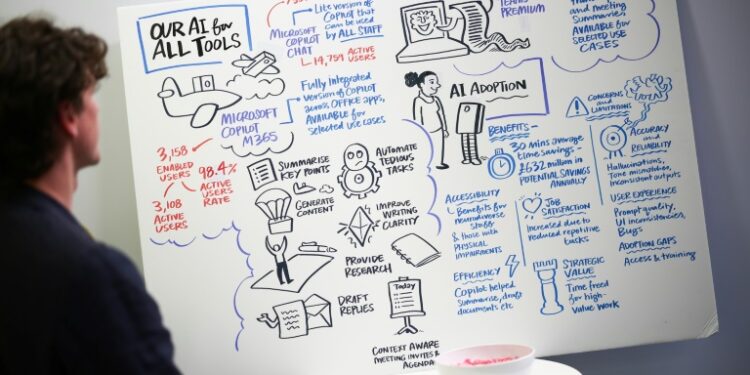 OUR AI for
ALL TOOLS
MICROSOFT
COPILOT
CHAT
Lite version of
Copilot that
can be used
by ALL STAFF
14,759 ACTIVE
USERS
MICROSOFT
COPILOT
M365
Fully Integrated
version of COPILOT
across OFFICE apps,
AVAILABLE for
selected use cases
3,158
ENABLED
USERS
98.4%
ACTIVE
USERS
RATE
3,108
ACTIVE
USERS
SUMMARISE
KEY POINTS
AUTOMATE
TEDIOUS
TASKS
GENERATE
CONTENT
IMPROVE
WRITING
CLARITY
PROVIDE
RESEARCH
DRAFT
REPLIES
Today
CONTEXT AWARE
MEETING INVITES &
AGENDA
TEAMS
PREMIUM
and meeting
Summaries,
AVAILABLE for
SELECTED USE
CASES
AI ADOPTION
BENEFITS
30 mins average
time savings -
£632 million in
POTENTIAL SAVINGS
ANNUALLY
ACCESSIBILITY
Benefits for
neurodiverse
staff
& those with
PHYSICAL
IMPAIRMENTS
JOB
SATISFACTION
Increased due to
reduced repetitive
tasks
EFFICIENCY
Copilot helped
summarise, draft
documents etc
STRATEGIC
VALUE
Time freed
for high-
value work
CONCERNS
and
LIMITATIONS
ACCURACY
and
RELIABILITY
Hallucinations,
Tone mismatches,
Inconsistent outputs
USER EXPERIENCE
Prompt quality,
UI inconsistencies,
Bugs
ADOPTION GAPS
Access & training